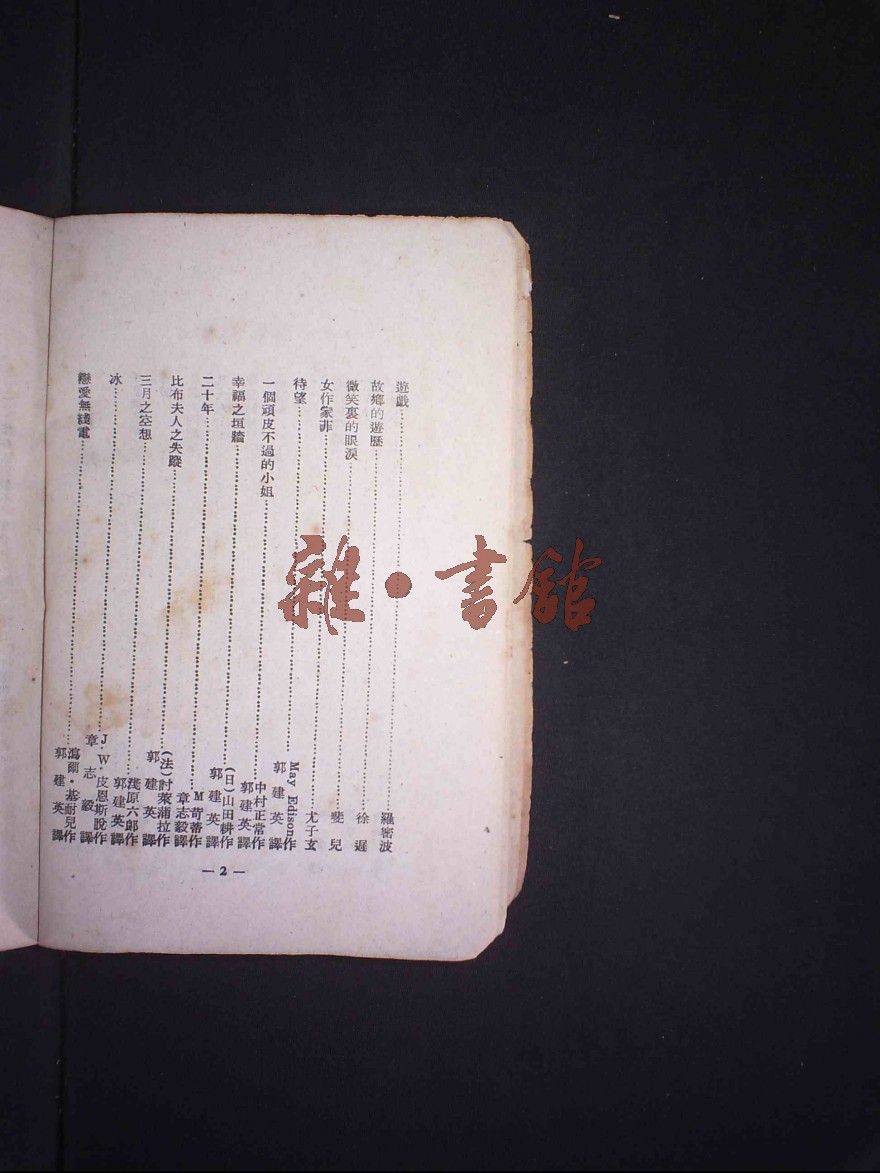 遊戲……羅密波
故鄉的遊歷……徐遲
微笑裏的眼淚……斐兒
女作家菲……尤子玄
待望……May Edison作
郭建英譯
一個頑皮不過的小姐……中村正常作
郭建英譯
幸福之垣牆……(日)山田耕作
郭建英譯
二十年……M苛蒂作
章志毅譯
比布夫人之失蹤……(法)討萊蒲拉作
郭建英譯
三月之空想……淺原六郎作
郭建英譯
冰……J.W.皮恩斯脫作
章志毅譯
戀愛無綫電……瀉爾·基耐兒作
郭建英譯
—2—
雜·書館